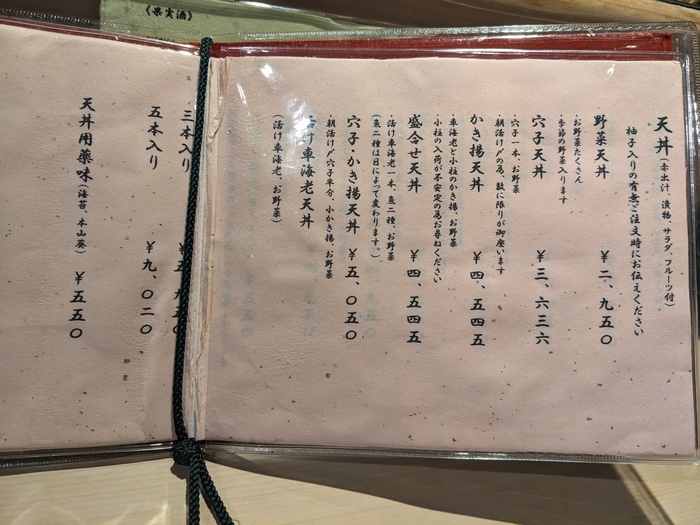 《果実酒》
天丼（赤出汁、漬物、サラダ、フルーツ付）
柚子入りの有無ご注文時にお伝えください
野菜天丼 ￥二、九五〇
・お野菜たくさん
・季節の野菜入ります
穴子天丼 ￥三、六三六
・穴子一本、お野菜
・朝活け〆の為、数に限りが御座います
かき揚天丼 ￥四、五四五
・車海老と小柱のかき揚、お野菜
・小柱の入荷が不安定の為お尋ねください
盛合せ天丼 ￥四、五四五
・活け車海老一本、魚二種、お野菜
（魚二種は日によって変わります。）
穴子・かき揚天丼 ￥五、〇五〇
・朝活け〆穴子半分、小かき揚、お野菜
活け車海老天丼
（活け車海老、お野菜）
三本入り
五本入り ￥九、〇二〇
天丼用薬味（海苔、本山葵） ￥五五〇